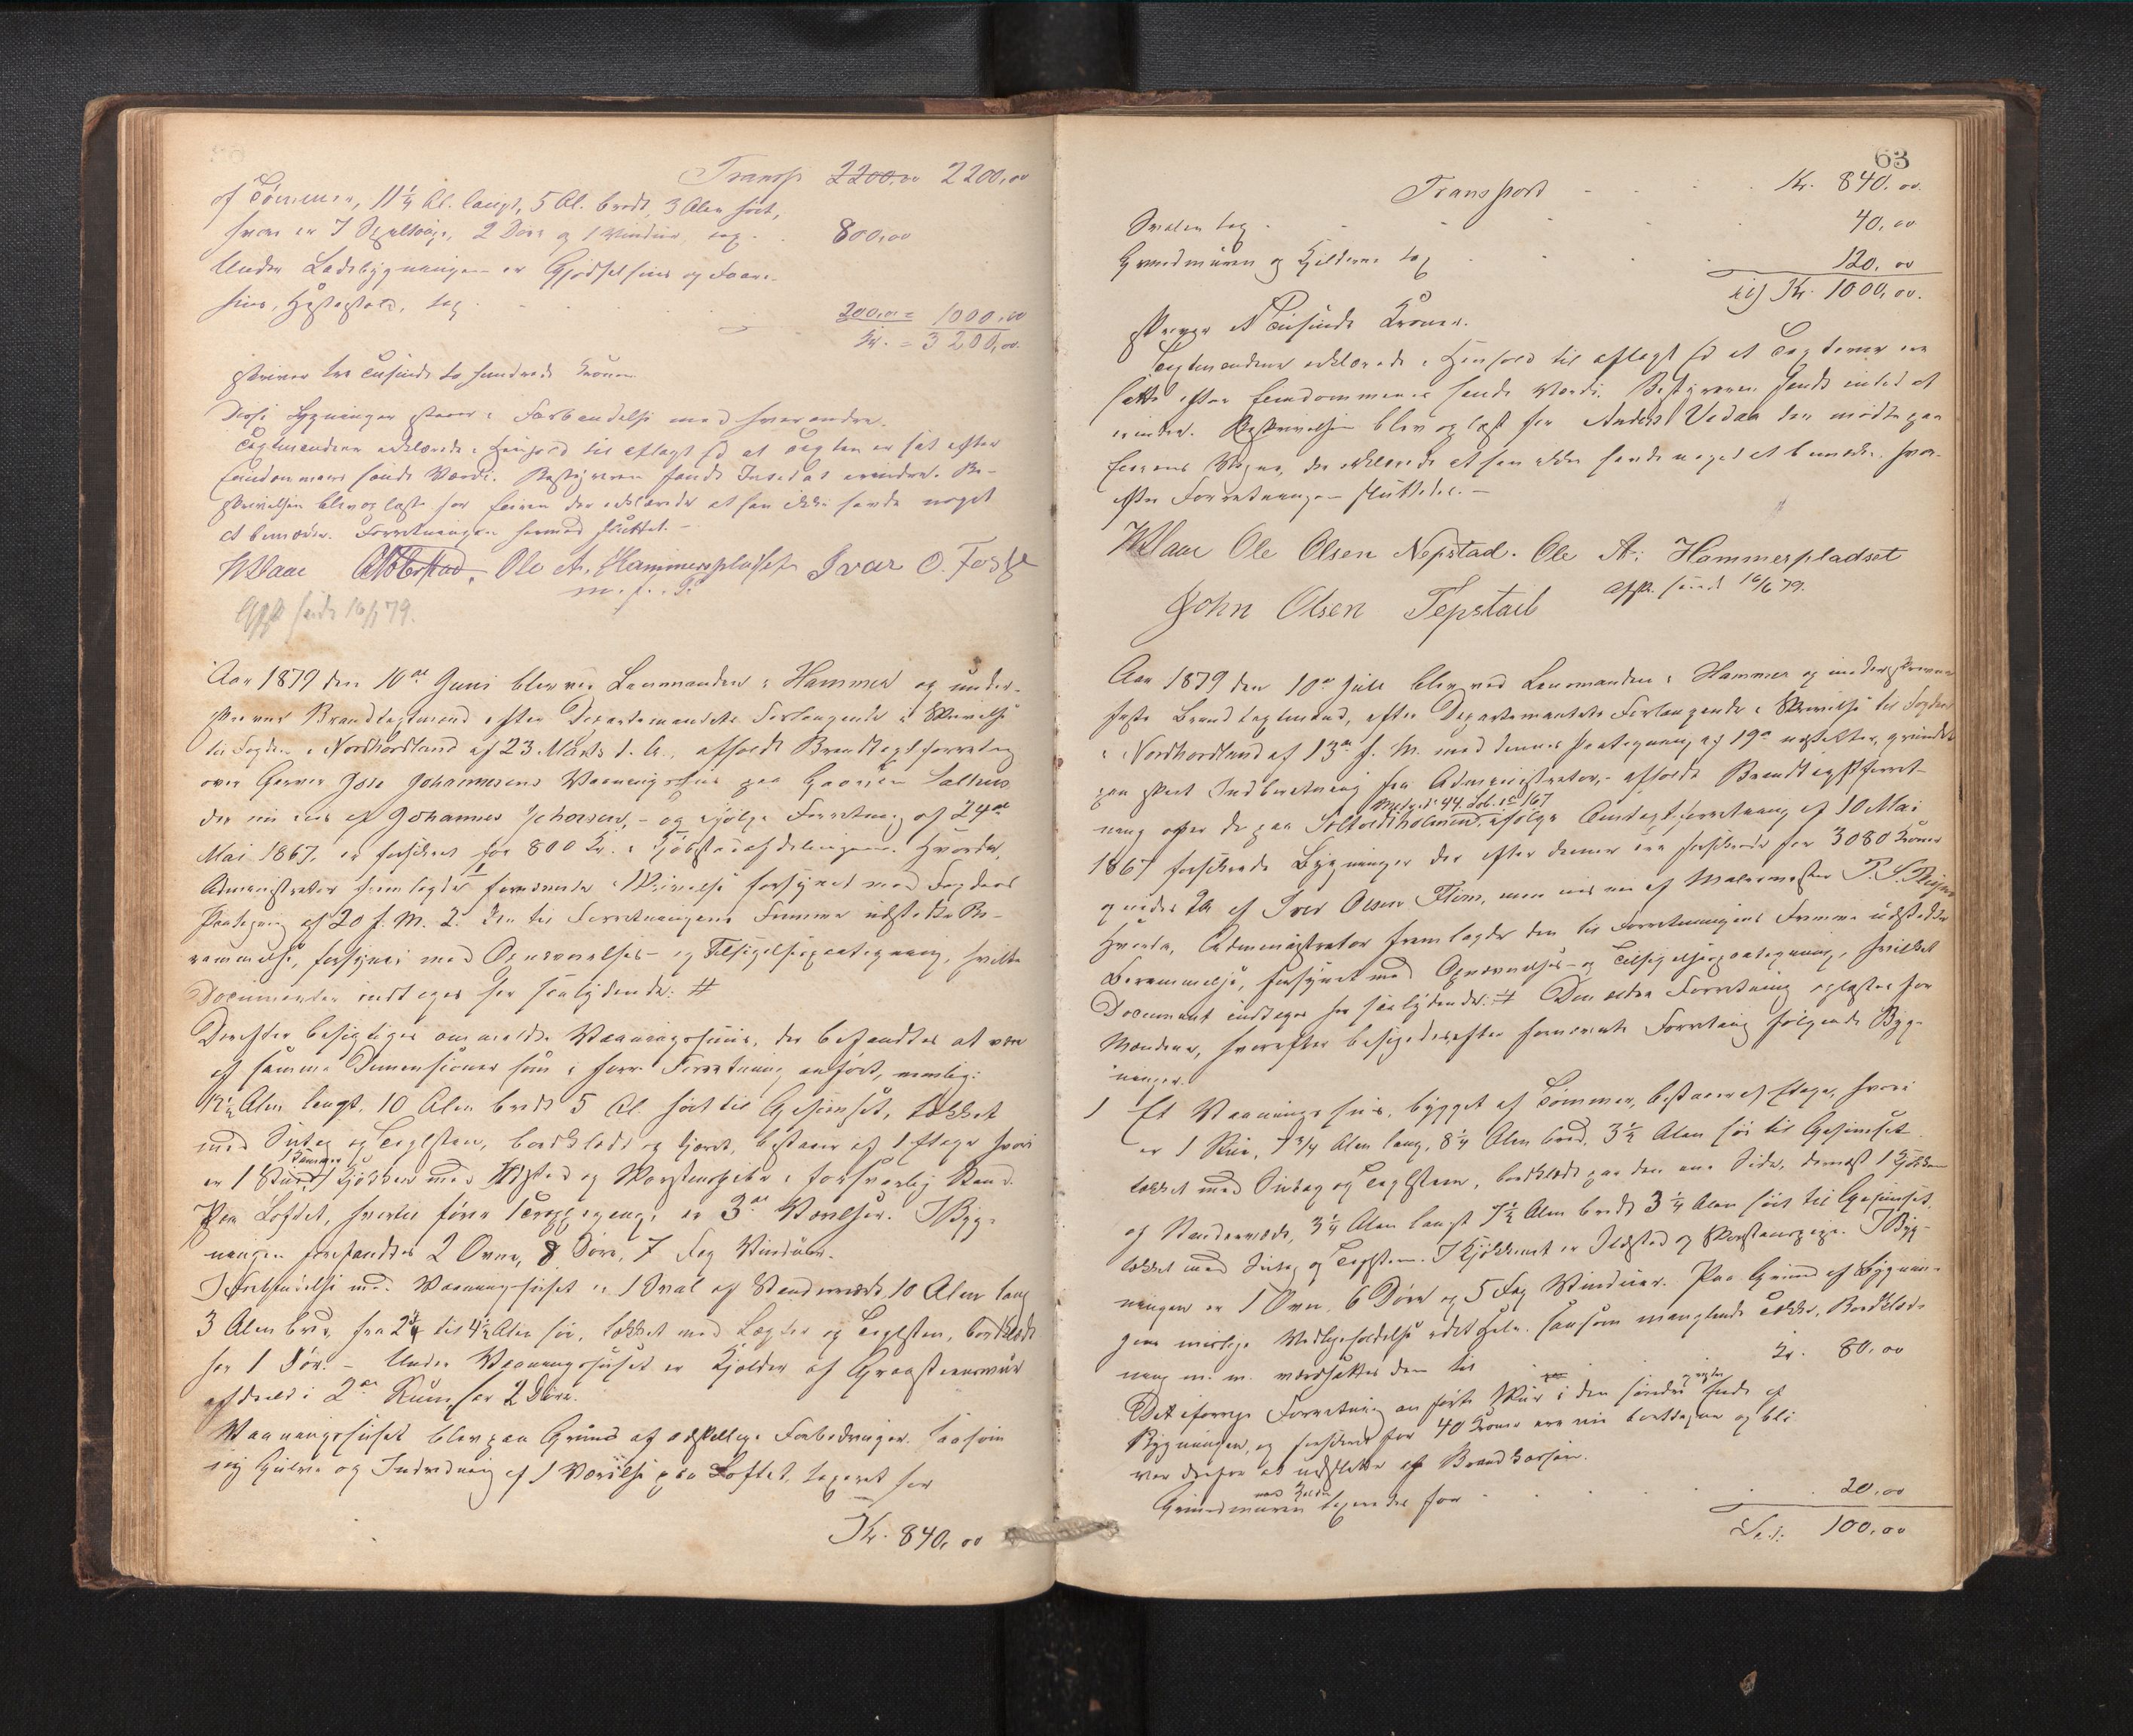 Transp. 2200,00 2200,00
af Tømmer, 11 1/4 Al. langt, 5 Al. bredt, 3 Alen høit,
hvori er 2 Døre og 1 Vindue, tax. 800,00
Under Ladebygningen er Gjødselhuus og Faare-
huus, Hestestald, tax. 200,00 = 1000,00
Kr. = 3200,00
skriver tre Tusinde to hundrede Kroner.
Disse Bygninger staaer i Forbindelse med hverandre.
Taxtmændene erklærede i Henhold til aflagt Ed at Taxten er sat efter
Eiendommens sande Værdi. Bestyreren fandt Intet at erindre. Be-
skrivelsen blev oplæst for Eieren der erklærede at han ikke havde noget
at bemærke. Forretningen hermed sluttet. –
Ole A. Hammerspladset Ivar O. Fosse
m. f. P.
Afsk. sendt 16/6 79.
Aar 1879 den 10de Juni blev ved Lensmanden i Hammer og under-
skrevne Brandtaxtmænd efter Departementets Forlangende i Skrivelse
til Fogden i Nordhordland af 23 Marts d. A., afholdt Brandtaxtforretning
over Johannesens Vaaningshuus paa Gaarden
der nu eies af Johannes og ifølge Forretning af 24de
Mai 1867, er forsikret for 800 Kr. i Kjøbstadafdelingen. Hvorda,
Administrator fremlagde 1 fornævnte Skrivelse forsynet med Fogdens
Paategning af 20 f. M. 2. Den til Forretningens Fremme udstedte Be-
rammelse, forsynet med Opnævnelses- og Tilsigelsespaategning, hvilke
Documenter indtages her saalydende: #
Derefter besigtiges ommeldte Vaaningshuus, der befandtes at være
af samme Dimensioner som i forr. Forretning anført, nemlig:
12 1/2 Alen langt, 10 Alen bredt 5 Al. høit til Gesimset, tækket
med Sutag og Taglsten, bordklædt og tjæret, bestaaer af 1 Etage hvori
er 1 Stue, 1 Kammer, 1 Kjøkken med Ildsted og Skorstenspibe i forsvarlig Stand.
Paa Loftet, hvortil fører 1 Trappegang, er 3de Værelser. I Byg-
ningen forefandtes 2 Ovne, 8 Døre, 7 Fag Vinduer.
I Forbindelse med Vaaningshuset er 1 Sval af Standerværk 10 Alen lang
3 Alen bred, fra 2 3/4 til 4 1/2 Alen høi, tækket med Lægter og Taglsten, bordklædt
har 1 Dør. – Under Vaaningshuset er Kjelder af Graasteensmuur
afdeelt i 2de Rum, har 2 Døre.
Vaaningshuset blev paa Grund af adskillige Forbedringer, saasom
ny Gulve og Indredning af 1 Værelse paa Loftet, taxeret for
Kr. 840,00
63
Transport Kr. 840,00
Svalen tax. 40,00
Grundmuren og Kjelderne tax. 120,00
Kr. 1000,00.
skriver Et Tusinde Kroner.
Taxtmændene erklærede i Henhold til aflagt Ed at Taxterne ere
satte efter Eiendommenes sande Værdi. Bestyreren fandt intet at
erindre. Beskrivelsen blev oplæst for Anders Vedaa der mødte paa
Eierens Vegne, der erklærede at han ikke havde noget at bemærke, hvor-
efter Forretningen sluttedes. –
Ole Olsen Nepstad. Ole A. Hammerpladset
John Olsen Tepstad Afsk. sendt 16/6 79.
Aar 1879 den 10de Juli blev ved Lensmanden i Hammer og underskrevne
faste Brandtaxtmænd, efter Departementets Forlangende i Skrivelse til Fogden
i Nordhordland af 13de f. M. med dennes Paategning af 19de næstefter, grundet
paa skeet Indberetning fra Administrator, afholdt Brandtaxtforret-
ning over de paa ifølge Omtaxtforretning af 10 Mai
1867 forsikrede Bygninger der efter denne ere forsikrede for 3080 Kroner
af Iver Olsen men nu eies af Malermester
Hvorda, Administrator fremlagde den til Forretningens Fremme udstedte
Berammelse, forsynet med Opnævnelses- og Tilsigelsespaategning, hvilket
Document indtages her saalydende: # Den ældre Forretning oplæstes for
Mændene, hvorefter besigtedes efter fornævnte Forretning følgende Byg-
ninger.
1 Et Vaaningshuus, bygget af Tømmer, bestaaer af 1 Etage, hvori
er 1 Stue, 3/4 Alen lang, 8 1/4 Alen bred, 3 1/2 Alen høi til Gesimset
tækket med Sutag og Taglsteen, bordklædt paa den ene Side, dernæst 1 Kjøkken
af Standerværk, 3 1/4 Alen langt 7 1/2 Alen bredt 3 1/4 Alen høit til Gesimset,
tækket med Sutag og Taglsteen. I Kjøkkenet er Ildsted og Skorstenspibe. I Byg-
ningen er 1 Ovn, 6 Døre og 5 Fag Vinduer. Paa Grund af Bygnin-
gens mislige Vedligeholdelse i det Hele, saasom manglende Tække, Bordklæd-
ning m. m. værdsættes den til Kr. 80,00
Det i forrige Forretning anførte Skur i den søndre Ende af
Bygningen, og forsikret for 40 Kroner er nu borttagen og bli-
ver derfor at udslette af Brandkassen.
Grundmuren med Kjelder taxeredes for 20,00
100,00